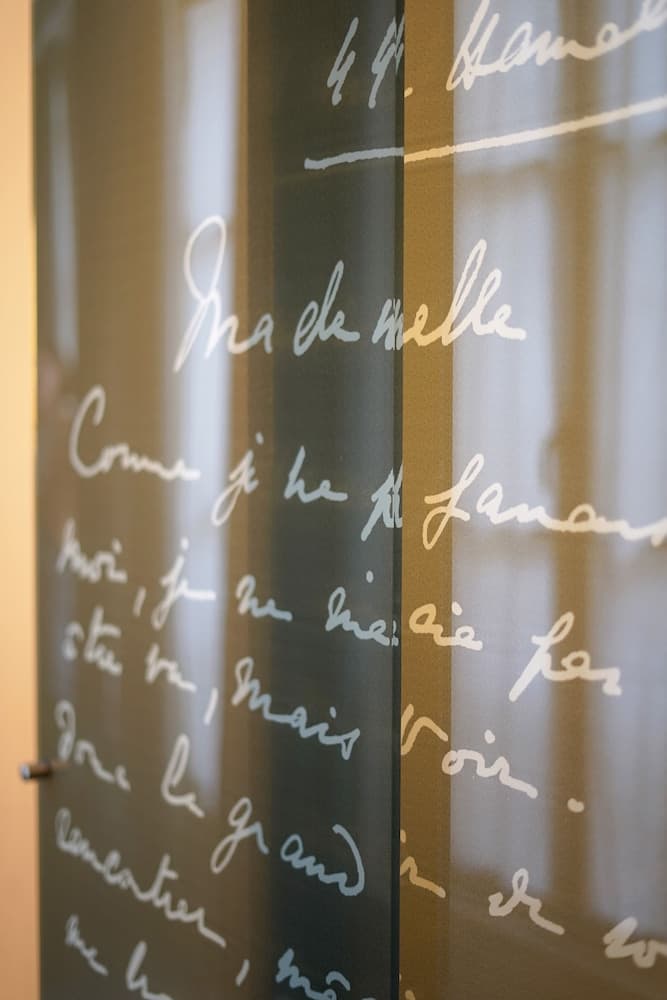 44. Hamel
Mademelle
Comme je ne jamais
moi, je ne cie pas
être vu, mais voir.
Donc le grand ir de vo
rencontrer, mê
me